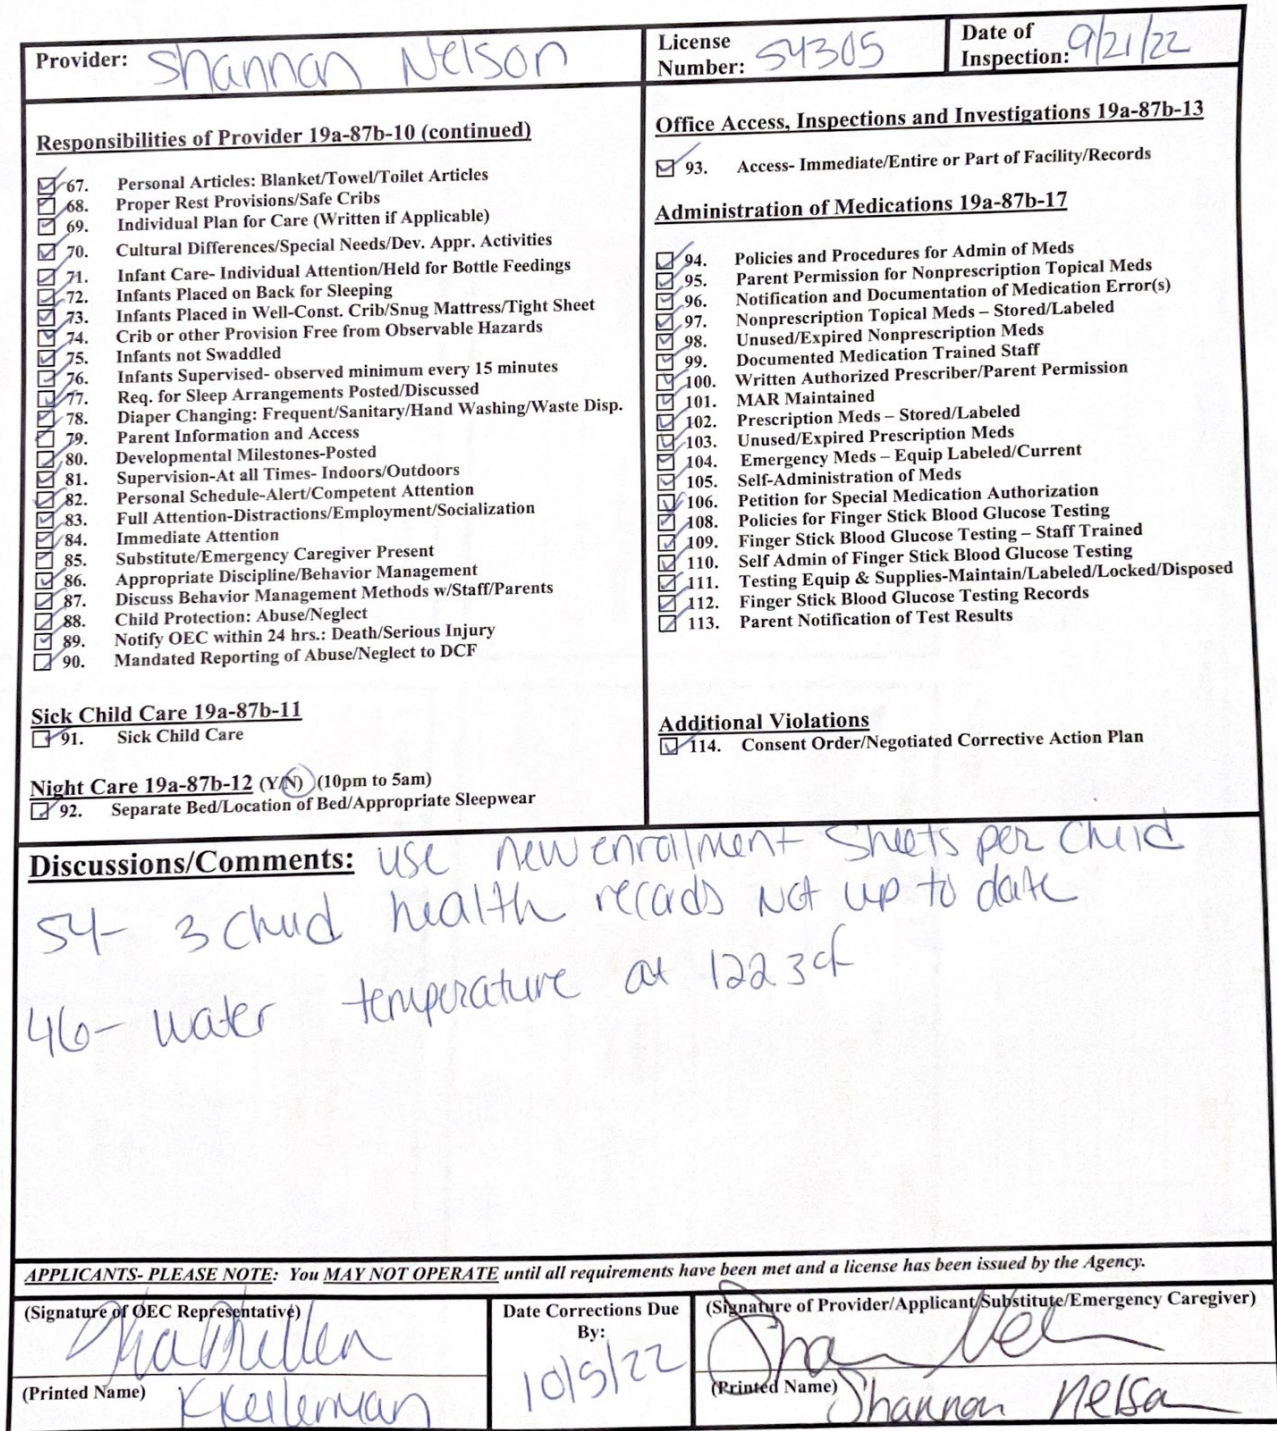 Provider: Shannan Nelson
License Number: 54305
Date of Inspection: 9/21/22
Responsibilities of Provider 19a-87b-10 (continued)
67. Personal Articles: Blanket/Towel/Toilet Articles
68. Proper Rest Provisions/Safe Cribs
69. Individual Plan for Care (Written if Applicable)
70. Cultural Differences/Special Needs/Dev. Appr. Activities
71. Infant Care- Individual Attention/Held for Bottle Feedings
72. Infants Placed on Back for Sleeping
73. Infants Placed in Well-Const. Crib/Snug Mattress/Tight Sheet
74. Crib or other Provision Free from Observable Hazards
75. Infants not Swaddled
76. Infants Supervised- observed minimum every 15 minutes
77. Req. for Sleep Arrangements Posted/Discussed
78. Diaper Changing: Frequent/Sanitary/Hand Washing/Waste Disp.
79. Parent Information and Access
80. Developmental Milestones-Posted
81. Supervision-At all Times- Indoors/Outdoors
82. Personal Schedule-Alert/Competent Attention
83. Full Attention-Distractions/Employment/Socialization
84. Immediate Attention
85. Substitute/Emergency Caregiver Present
86. Appropriate Discipline/Behavior Management
87. Discuss Behavior Management Methods w/Staff/Parents
88. Child Protection: Abuse/Neglect
89. Notify OEC within 24 hrs.: Death/Serious Injury
90. Mandated Reporting of Abuse/Neglect to DCF
Sick Child Care 19a-87b-11
91. Sick Child Care
Night Care 19a-87b-12 (Y/N) (10pm to 5am)
92. Separate Bed/Location of Bed/Appropriate Sleepwear
Office Access, Inspections and Investigations 19a-87b-13
93. Access- Immediate/Entire or Part of Facility/Records
Administration of Medications 19a-87b-17
94. Policies and Procedures for Admin of Meds
95. Parent Permission for Nonprescription Topical Meds
96. Notification and Documentation of Medication Error(s)
97. Nonprescription Topical Meds – Stored/Labeled
98. Unused/Expired Nonprescription Meds
99. Documented Medication Trained Staff
100. Written Authorized Prescriber/Parent Permission
101. MAR Maintained
102. Prescription Meds – Stored/Labeled
103. Unused/Expired Prescription Meds
104. Emergency Meds – Equip Labeled/Current
105. Self-Administration of Meds
106. Petition for Special Medication Authorization
108. Policies for Finger Stick Blood Glucose Testing
109. Finger Stick Blood Glucose Testing – Staff Trained
110. Self Admin of Finger Stick Blood Glucose Testing
111. Testing Equip & Supplies-Maintain/Labeled/Locked/Disposed
112. Finger Stick Blood Glucose Testing Records
113. Parent Notification of Test Results
Additional Violations
114. Consent Order/Negotiated Corrective Action Plan
Discussions/Comments: use new enrollment sheets per child
54- 3 child health records not up to date
46- water temperature at 122 3°F
APPLICANTS- PLEASE NOTE: You MAY NOT OPERATE until all requirements have been met and a license has been issued by the Agency.
(Signature of OEC Representative)
(Printed Name) K Kellerman
Date Corrections Due By:
10/5/22
(Signature of Provider/Applicant/Substitute/Emergency Caregiver)
(Printed Name) Shannon Nelson